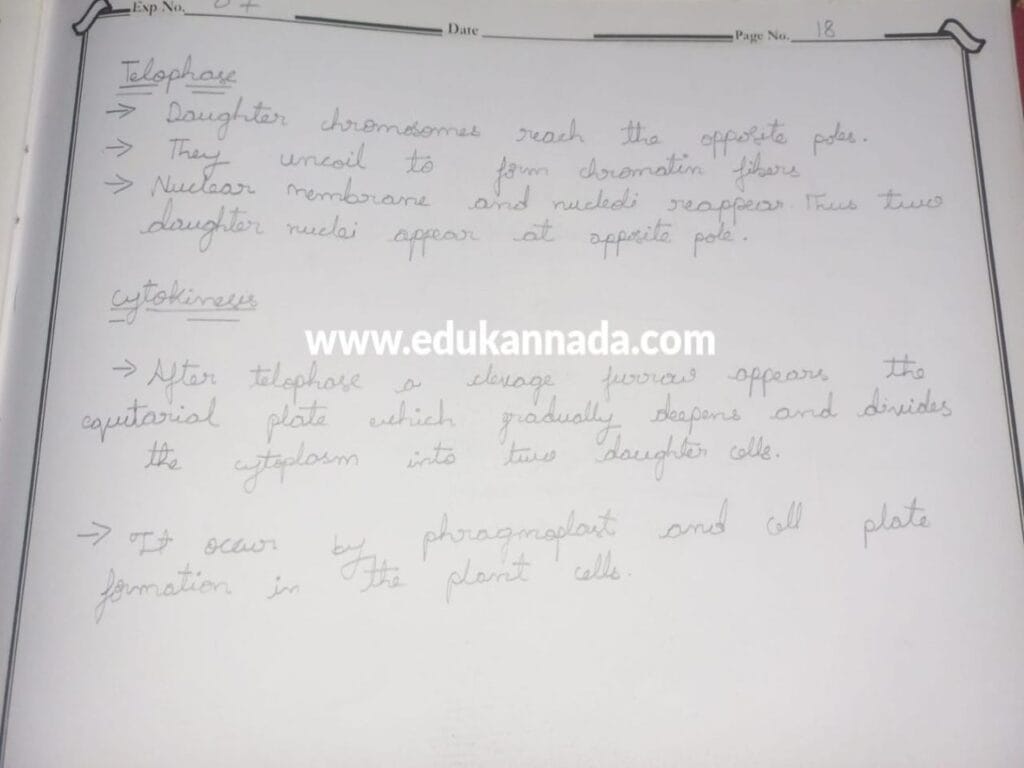 Exp No.
Date
Page No. 18
Telophase
→ Daughter chromosomes reach the opposite poles.
→ They uncoil to form chromatin fibers
→ Nuclear membrane and nucleoli reappear. Thus two
daughter nuclei appear at opposite pole.
cytokinesis
www.edukannada.com
→ After telophase a clevage furrow appears the
equitarial plate which gradually deepens and divides
the cytoplasm into two daughter cells.
→ It occur by phragmoplast and cell plate
formation in the plant cells.